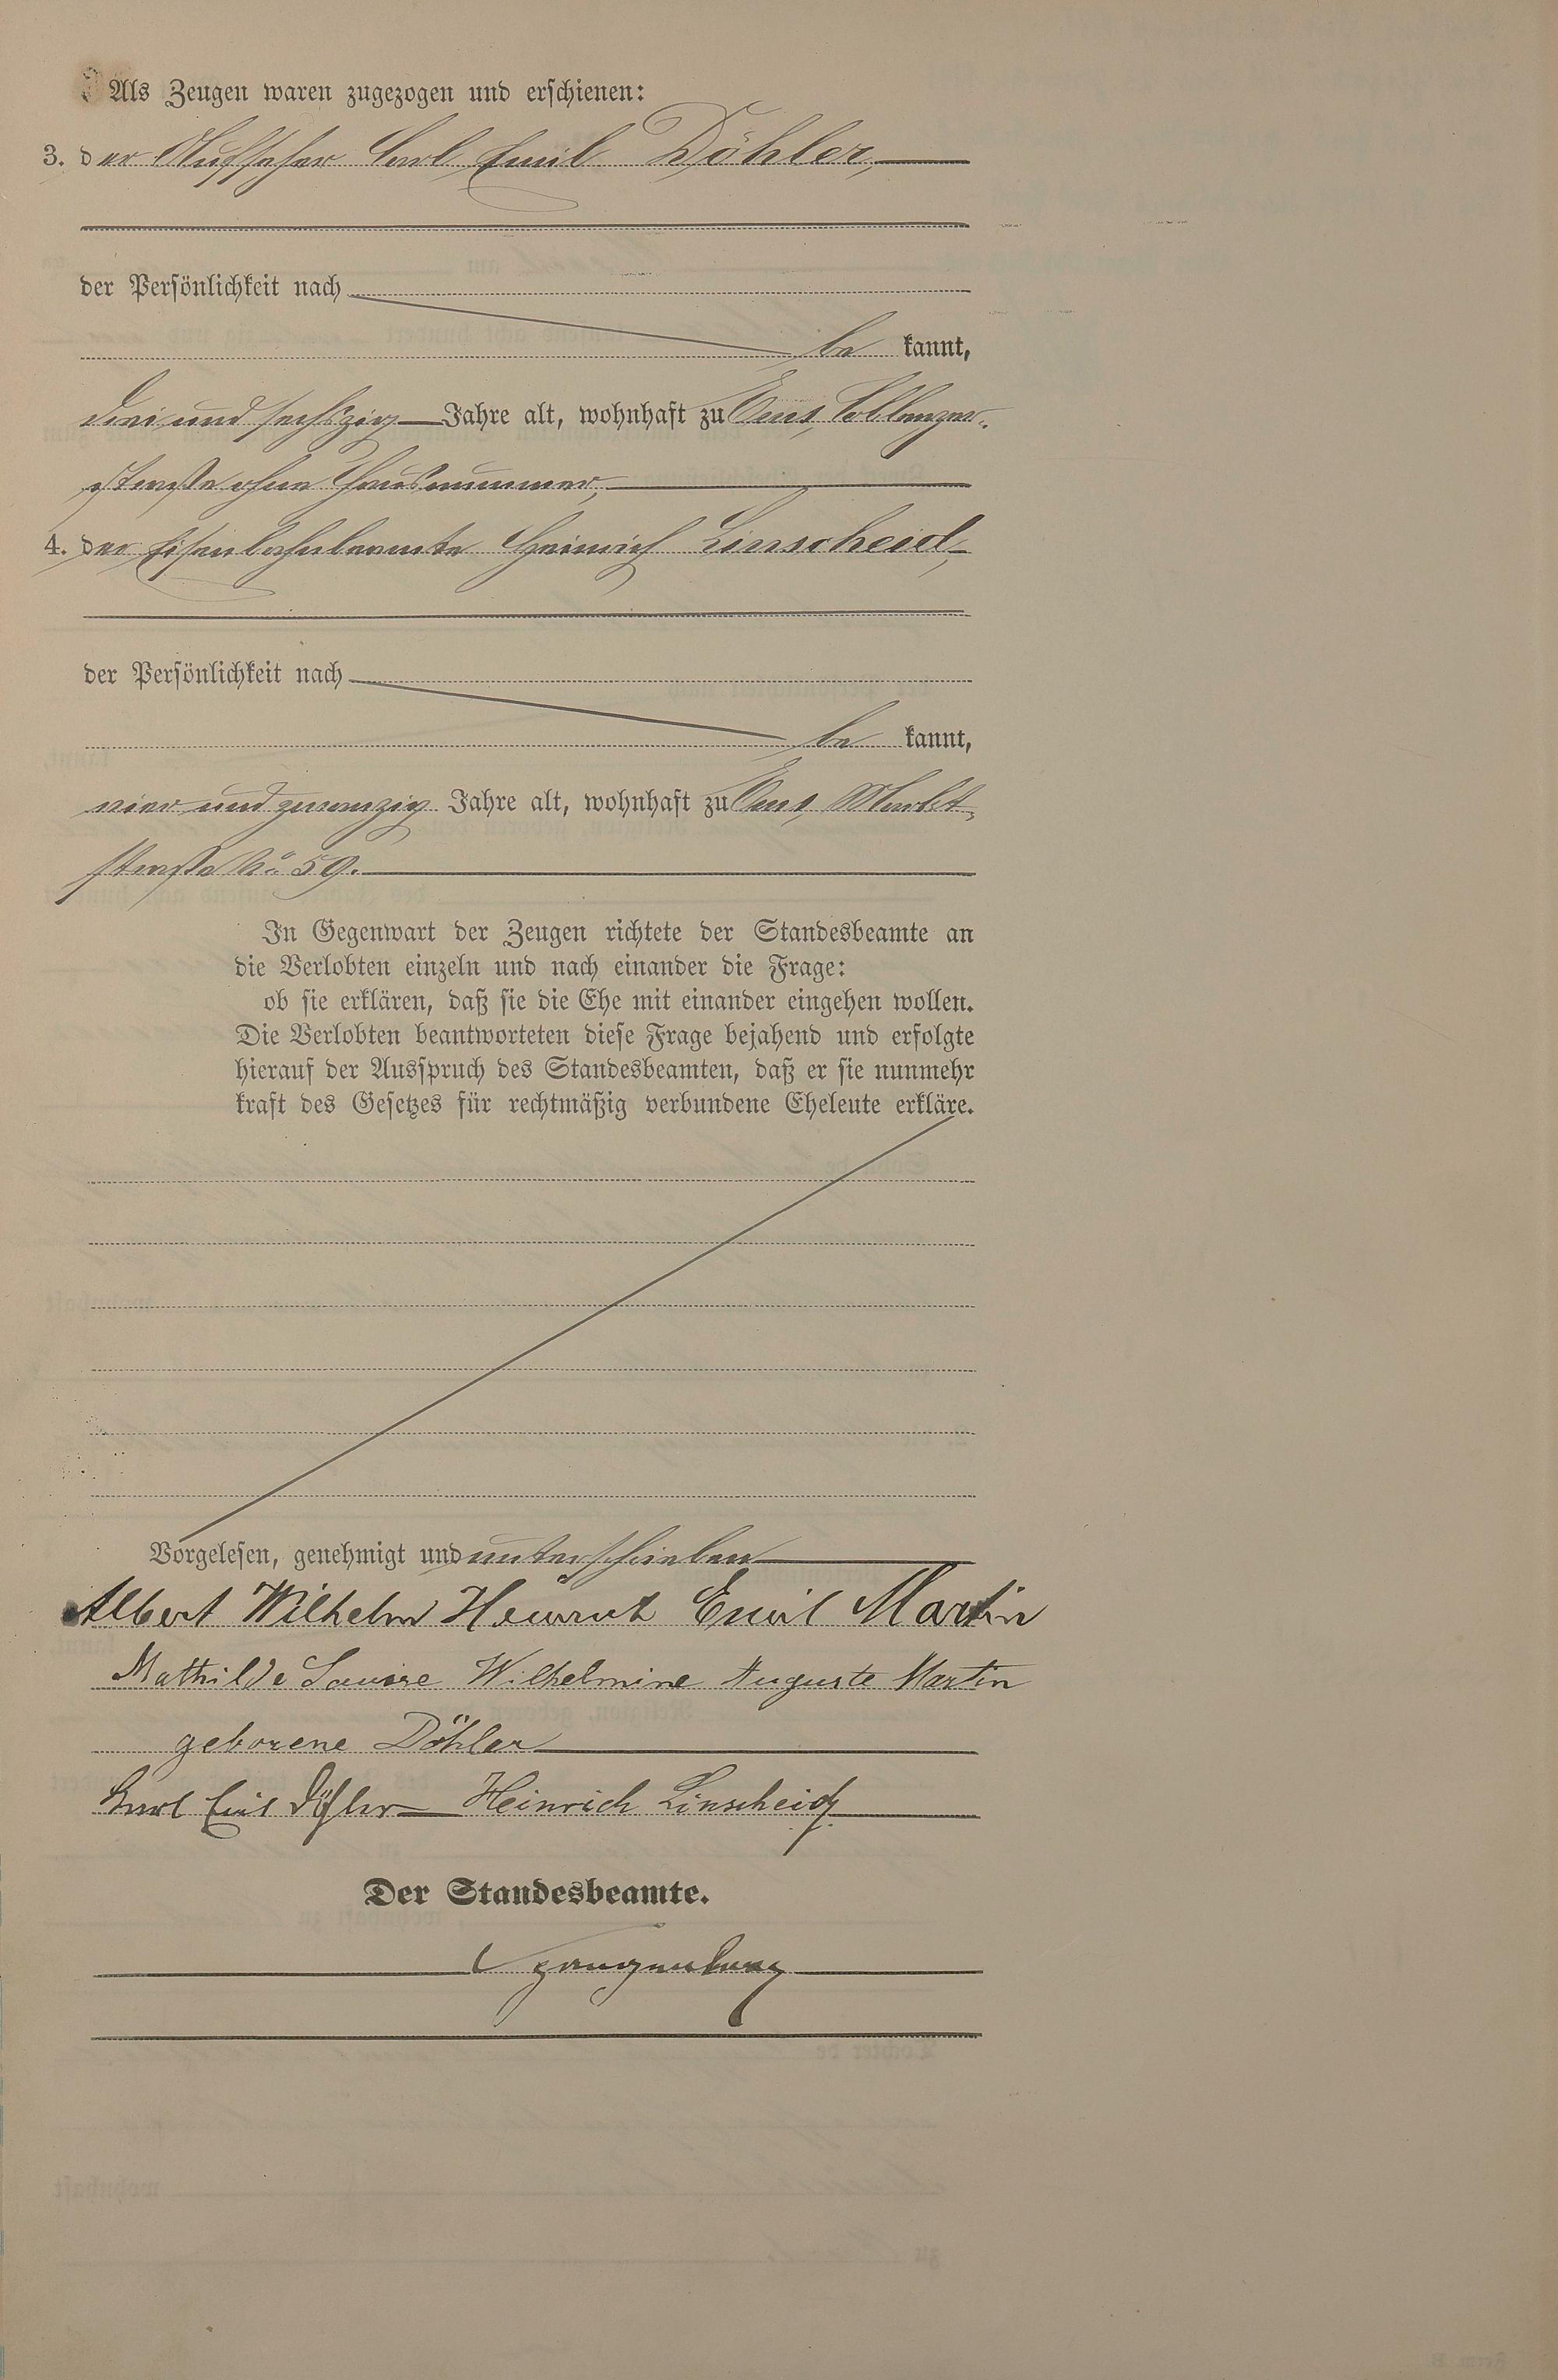 Als Zeugen waren zugezogen und erschienen:
3. der Aufseher Carl Emil Döhler,
der Persönlichkeit nach
be kannt,
drei und sechszig Jahre alt, wohnhaft zu Ems, Coblenzer-
straße ohne Hausnummer,
4. der Eisenbahnbeamte Heinrich Linscheid,
der Persönlichkeit nach
be kannt,
vier und zwanzig Jahre alt, wohnhaft zu Ems, Markt-
straße No 59.
In Gegenwart der Zeugen richtete der Standesbeamte an
die Verlobten einzeln und nach einander die Frage:
ob sie erklären, daß sie die Ehe mit einander eingehen wollen.
Die Verlobten beantworteten diese Frage bejahend und erfolgte
hierauf der Ausspruch des Standesbeamten, daß er sie nunmehr
kraft des Gesetzes für rechtmäßig verbundene Eheleute erkläre.
Vorgelesen, genehmigt und unterschrieben
Albert Wilhelm Heinrich Emil Martin
Mathilde Louise Wilhelmine Auguste Martin
geborene Döhler
Karl Emil Döhler Heinrich Linscheid
Der Standesbeamte.